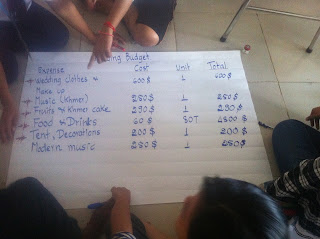 ing Budget
Expense Cost Unit Total
Wedding clothes & 600$ 1 600$
Make up
Music (Khmer) 250$ 1 250$
Fruits & Khmer cake 230$ 1 230$
Food & Drinks 60$ 80T 4800$
Tent, Decorations 200$ 1 200$
Modern music 250$ 1 250$